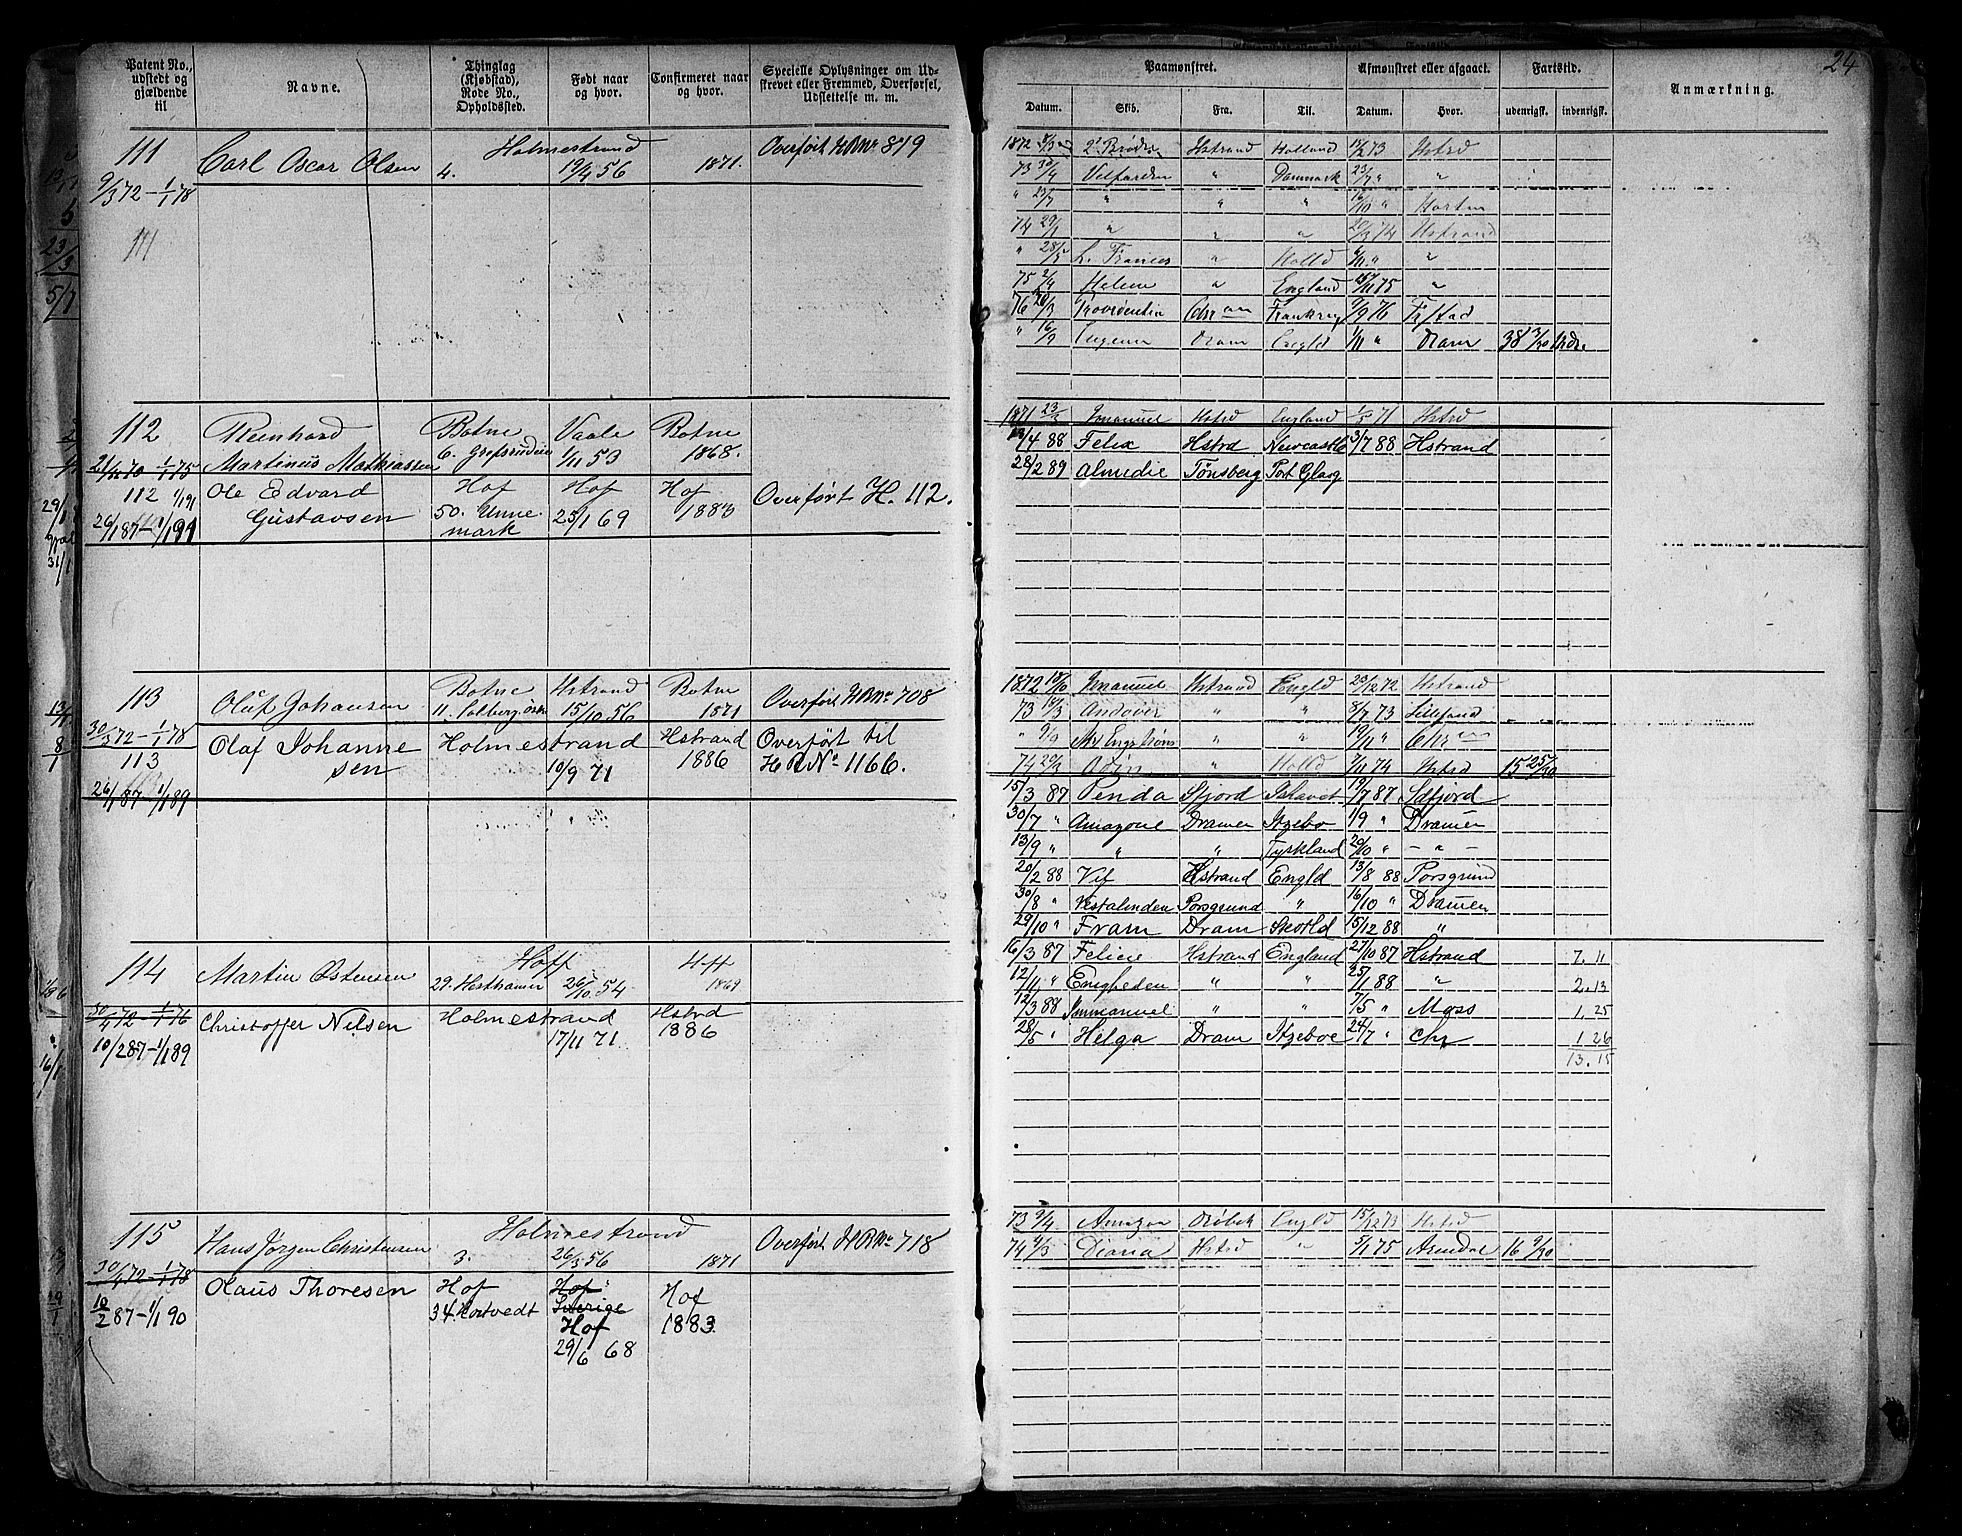 24
Patent No., udstedt og gjældende til
Navne.
Thinglag (Kjøbstad), Rode No., Opholdssted.
Født naar og hvor.
Confirmeret naar og hvor.
Specielle Oplysninger om Udskrevet eller Fremmed, Overførsel, Udslettelse m. m.
Paamønstret.
Afmønstret eller afgaaet.
Fartstid.
Anmærkning.
Datum. Skib. Fra. Til. Datum. Hvor. udenrigsk. indenrigsk.
111 Carl Oscar Olsen Holmestrand 4. 19/4 56 1871. Overført H R No 819
9/3 72 – 1/1 78
111
1872 Hstrand Holland 11/2 73 Hstrd
73 30/4 Vilfarden " Danmark 23/7 " "
" 23/7 " " " 16/10 " Horten
74 29/1 " " " 20/3 74 Hstrand
" 28/5 L. Frances " Holld 6/11 " "
75 2/4 Helene " England 75 "
76 20/3 Providentia Frankrig 9/9 76 Fr/stad
" 16/9 Eugenie Dram Engld 1/11 " Dram 38 3/30 Udr.
112 Reinhard Martinus Mathiassen Botne 6. Vaale 1/11 53 Botne 1868.
70 – 1/1 75
1871 23/3 Imanuel Hstrd England 71 Hstrd
112 1/1 91 Ole Edvard Gustavsen Hof 50. Unnemark Hof 25/1 69 Hof 1883 Overført H. 112.
26/1 87 – 1/1 91
/4 88 Felix Hstrd Newcastle 3/7 88 Hstrand
28/2 89 Almedie Tønsberg Port Glasg
113 Oluf Johansen Botne 11. Solberg Hstrand 15/10 56 Botne 1871 Overført H R No 708
30/3 72 – 1/1 78
1872 Imanuel Hstrand Engld 23/12 72 Hstrand
73 18/3 Andover " " 8/7 73
" 9/9 " " 19/11 "
74 29/3 Odin " Holld 7/11 74 Hstrd 15 25/30
113 Olaf Johannesen Holmestrand 10/9 71 Hstrand 1886 Overført til H R No 1166.
26/1 87 – 1/1 89
15/3 87 Penda Sfjord 19/7 87 Sdfjord
30/7 " Amazone Dramen Itzebo 1/9 " Dramen
13/9 " " " Tyskland 20/10 " – " –
20/2 88 Vif Hstrand Engld 13/8 88 Porsgrund
30/8 " Vestalinden Porsgrund " 16/10 " Dramen
29/10 " Fram Dram Skotld 15/12 88 "
114 Martin Østensen Hoff 29. Hesthamer 26/10 54 Hoff 1869
30/4 72 – 1/1 76
Christoffer Nilsen Holmestrand 17/11 71 Hstrd 1886
10/2 87 – 1/1 89
16/3 87 Felicie Hstrand England 27/10 87 Hstrand 7. 11
12/11 " Enigheden " " 25/1 88 " 2. 13
12/3 88 Immanuel " " 7/5 " Moss 1. 25
28/5 " Helga Dram Itzeboe 24/7 " Chr 1 26
13. 15
115 Hans Jørgen Christensen Holmestrand 3. 26/3 56 1871 Overført H R No 718
30/4 72 – 1/1 78
73 9/4 Amazon Drøbak Engld 15/12 73 Hstrd
74 4/3 Diana Hstrd " 5/1 75 Arendal 16 9/30
Olaus Thoresen Hof 34. Hortvedt Hof Sverige Hof 29/6 68 Hof 1883.
10/2 87 – 1/1 90